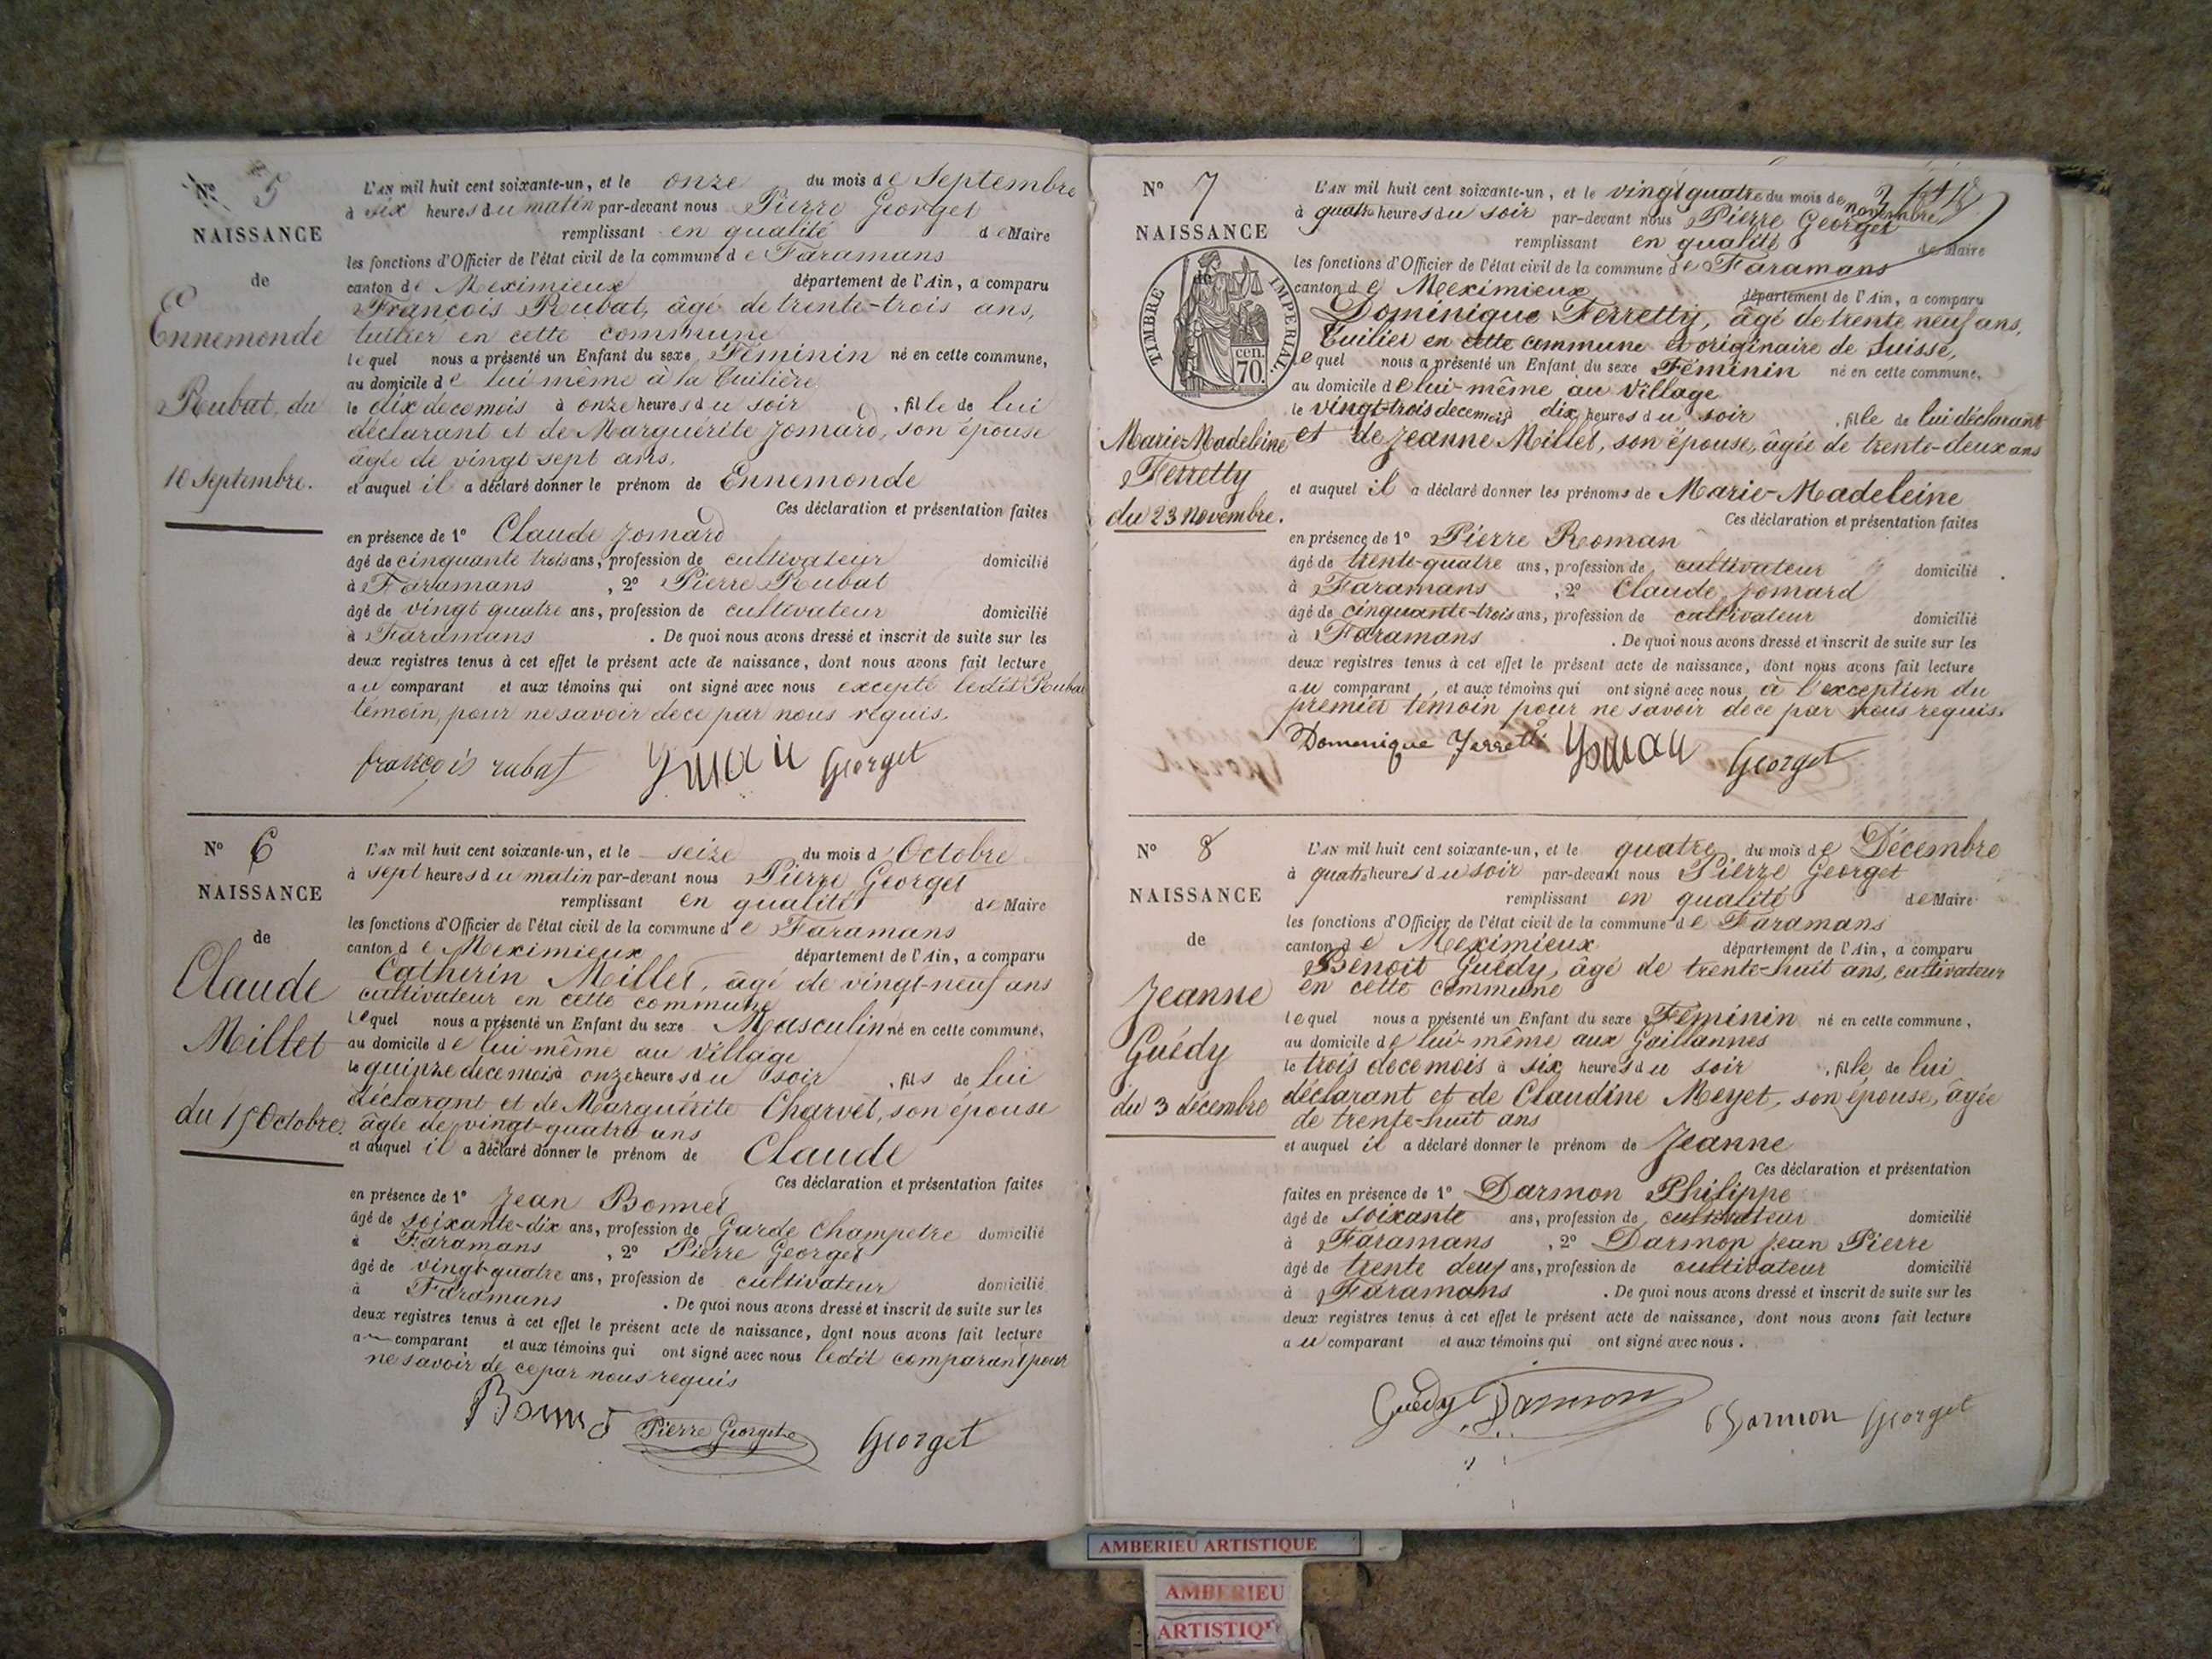 Nº 5
NAISSANCE
de
Ennemonde
Rubat, du
10 Septembre.
L'AN mil huit cent soixante-un, et le onze du mois de Septembre
à six heures du matin par-devant nous Pierre Georget
remplissant en qualité de Maire
les fonctions d'Officier de l'état civil de la commune de Faramans
canton de Meximieux département de l'Ain, a comparu
François Rubat, âgé de trente-trois ans,
tuilier en cette commune
lequel nous a présenté un Enfant du sexe Féminin né en cette commune,
au domicile de lui même à la Tuilière
le dix de ce mois à onze heures du soir , fille de lui
déclarant et de Marguérite Jomard, son épouse
âgée de vingt sept ans.
et auquel il a déclaré donner le prénom de Ennemonde
Ces déclaration et présentation faites
en présence de 1º Claude Jomard
âgé de cinquante trois ans, profession de cultivateur domicilié
à Faramans , 2º Pierre Rubat
âgé de vingt quatre ans, profession de cultivateur domicilié
à Faramans . De quoi nous avons dressé et inscrit de suite sur les
deux registres tenus à cet effet le présent acte de naissance, dont nous avons fait lecture
au comparant et aux témoins qui ont signé avec nous excepté ledit Rubat
témoin, pour ne savoir de ce par nous réquis.
françois rubat Georget
Nº 6
NAISSANCE
de
Claude
Millet
du 15 Octobre.
L'AN mil huit cent soixante-un, et le seize du mois d'Octobre
à sept heures du matin par-devant nous Pierre Georget
remplissant en qualité de Maire
les fonctions d'Officier de l'état civil de la commune de Faramans
canton de Meximieux département de l'Ain, a comparu
Catherin Millet, âgé de vingt-neuf ans
cultivateur en cette commune
lequel nous a présenté un Enfant du sexe Masculin né en cette commune,
au domicile de lui même au village
le quinze de ce mois à onze heures du soir , fils de lui
déclarant et de Marguérite Charvet, son épouse
âgée de vingt-quatre ans
et auquel il a déclaré donner le prénom de Claude
Ces déclaration et présentation faites
en présence de 1º Jean Bonnet
âgé de soixante-dix ans, profession de Garde Champetre domicilié
à Faramans , 2º Pierre Georget
âgé de vingt-quatre ans, profession de cultivateur domicilié
à Faramans . De quoi nous avons dressé et inscrit de suite sur les
deux registres tenus à cet effet le présent acte de naissance, dont nous avons fait lecture
a comparant et aux témoins qui ont signé avec nous ledit comparant pour
ne savoir de ce par nous requis
Bonnet Pierre Georget Georget
Nº 7
NAISSANCE
de
TIMBRE IMPERIAL.
70. cen.
Marie-Madeleine
Ferretty
du 23 Novembre.
L'AN mil huit cent soixante-un, et le vingt quatre du mois de novembre
à quatre heures du soir par-devant nous Pierre Georget
remplissant en qualité de Maire
les fonctions d'Officier de l'état civil de la commune de Faramans
canton de Meximieux département de l'Ain, a comparu
Dominique Ferretty, âgé de trente neuf ans,
Tuilier en cette commune et originaire de Suisse,
lequel nous a présenté un Enfant du sexe Féminin né en cette commune,
au domicile de lui-même au Village
le vingt-trois de ce mois à dix heures du soir , fille de lui déclarant
et de Jeanne Millet, son épouse, âgée de trente-deux ans
et auquel il a déclaré donner les prénoms de Marie-Madeleine
Ces déclaration et présentation faites
en présence de 1º Pierre Roman
âgé de trente-quatre ans, profession de cultivateur domicilié
à Faramans , 2º Claude Jomard
âgé de cinquante-trois ans, profession de cultivateur domicilié
à Faramans . De quoi nous avons dressé et inscrit de suite sur les
deux registres tenus à cet effet le présent acte de naissance, dont nous avons fait lecture
au comparant , et aux témoins qui ont signé avec nous à l'exception du
premier témoin pour ne savoir de ce par nous requis.
Domenique Ferretti Georget
Nº 8
NAISSANCE
de
Jeanne
Guédy
du 3 décembre
L'AN mil huit cent soixante-un, et le quatre du mois de Décembre
à quatre heures du soir par-devant nous Pierre Georget
remplissant en qualité de Maire
les fonctions d'Officier de l'état civil de la commune de Faramans
canton de Meximieux département de l'Ain, a comparu
Benoit Guédy, âgé de trente-huit ans, cultivateur
en cette commune
lequel nous a présenté un Enfant du sexe Féminin né en cette commune,
au domicile de lui-même aux Gaillannes
le trois de ce mois à six heures du soir , fille de lui
déclarant et de Claudine Meyet, son épouse, âgée
de trente-huit ans
et auquel il a déclaré donner le prénom de Jeanne
Ces déclaration et présentation
faites en présence de 1º Darmon Philippe
âgé de soixante ans, profession de cultivateur domicilié
à Faramans , 2º Darmon Jean Pierre
âgé de trente deux ans, profession de cultivateur domicilié
à Faramans . De quoi nous avons dressé et inscrit de suite sur les
deux registres tenus à cet effet le présent acte de naissance, dont nous avons fait lecture
au comparant et aux témoins qui ont signé avec nous.
Guédy Darmon Darmon Georget
AMBERIEU ARTISTIQUE
AMBERIEU
ARTISTIQU